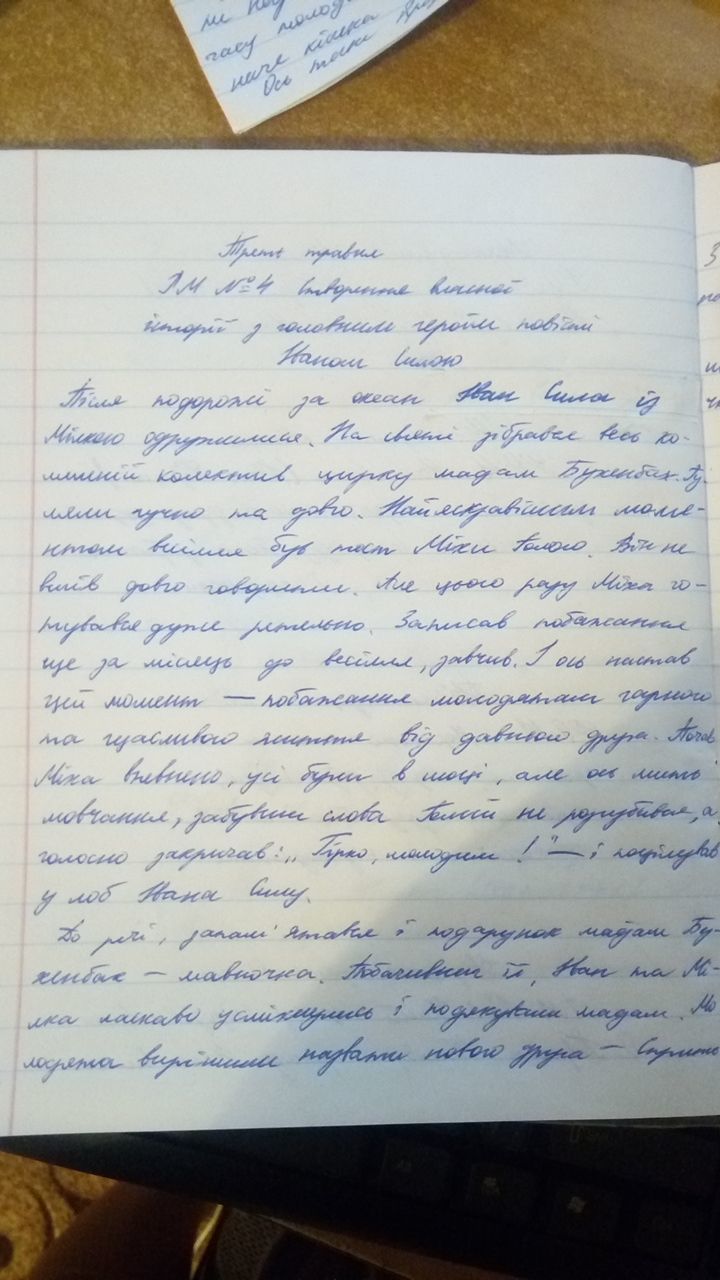 часу молод
наче кішка
Ось таки
Третє травня
РМ №4 Створення власної
історії з головним героєм повісті
Іваном Силою
Після подорожі за океан Іван Сила із
Мілкою одружилися. На святі зібрався весь ко-
лишній колектив цирку мадам Бухенбах. Гу-
ляли гучно та довго. Найяскравішим моме-
нтом весілля був тост Міхи Голого. Він не
вмів довго говорити. Але цього разу Міха го-
тувався дуже ретельно. Записав побажання
ще за місяць до весілля, завчив. І ось настав
цей момент — побажання молодятам гарного
та щасливого життя від давнього друга. Почав
Міха впевнено, усі були в шоці, але ось мить
мовчання, забувши слова Голий не розгубився, а
голосно закричав: „Гірко, молодим!" — і поцілував
у лоб Івана Силу.
До речі, запам'ятався і подарунок мадам Бу-
хенбах — мавпочка. Побачивши її, Іван та Мі-
лка ласкаво усміхнулись і подякували мадам. Мо
лодята вирішили назвати нового друга —